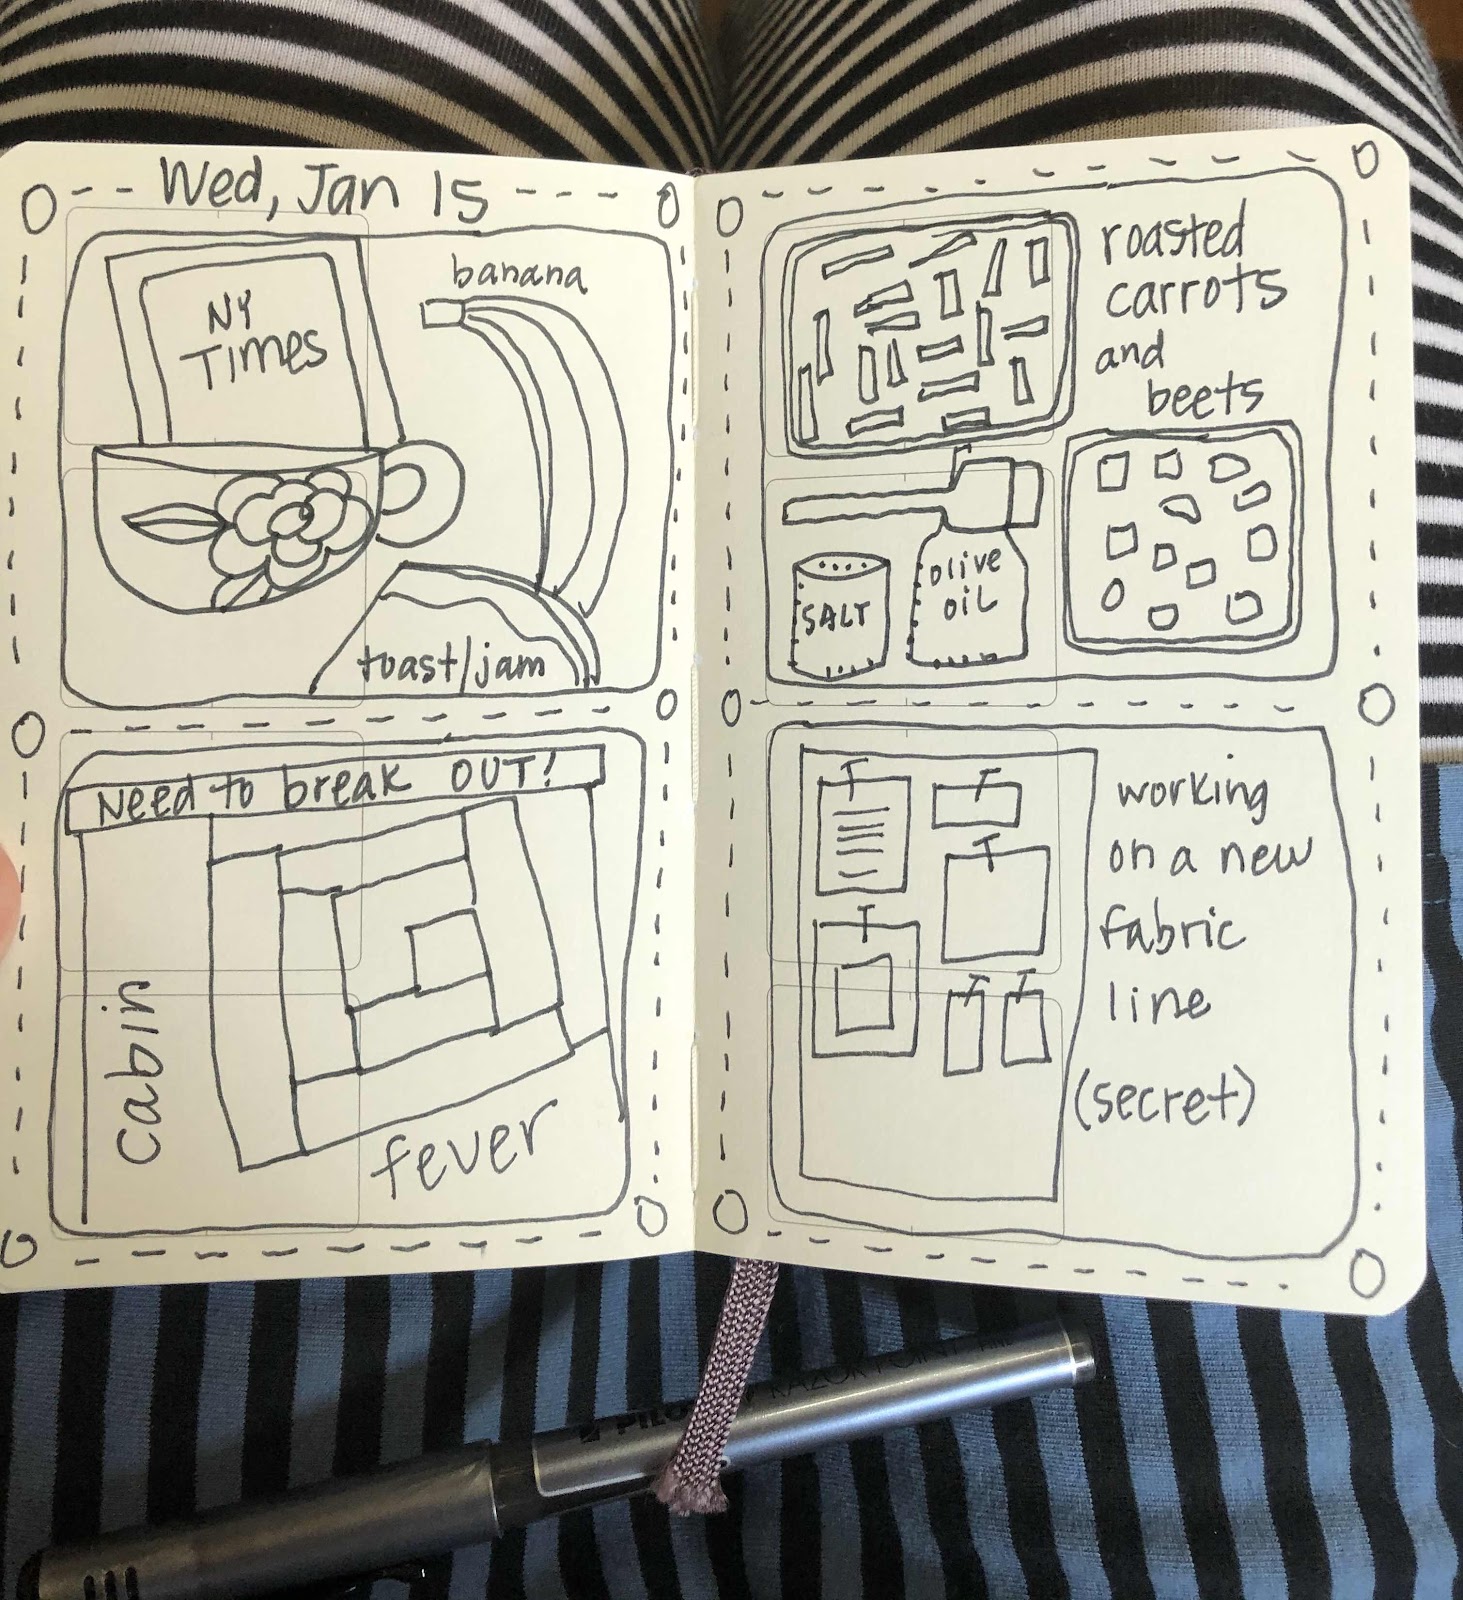 Wed, Jan 15
NY
Times
banana
toast/jam
Need to break OUT!
cabin
fever
roasted
carrots
and
beets
SALT
olive
oil
working
on a new
fabric
line
(secret)
PILOT
RAZOR POINT